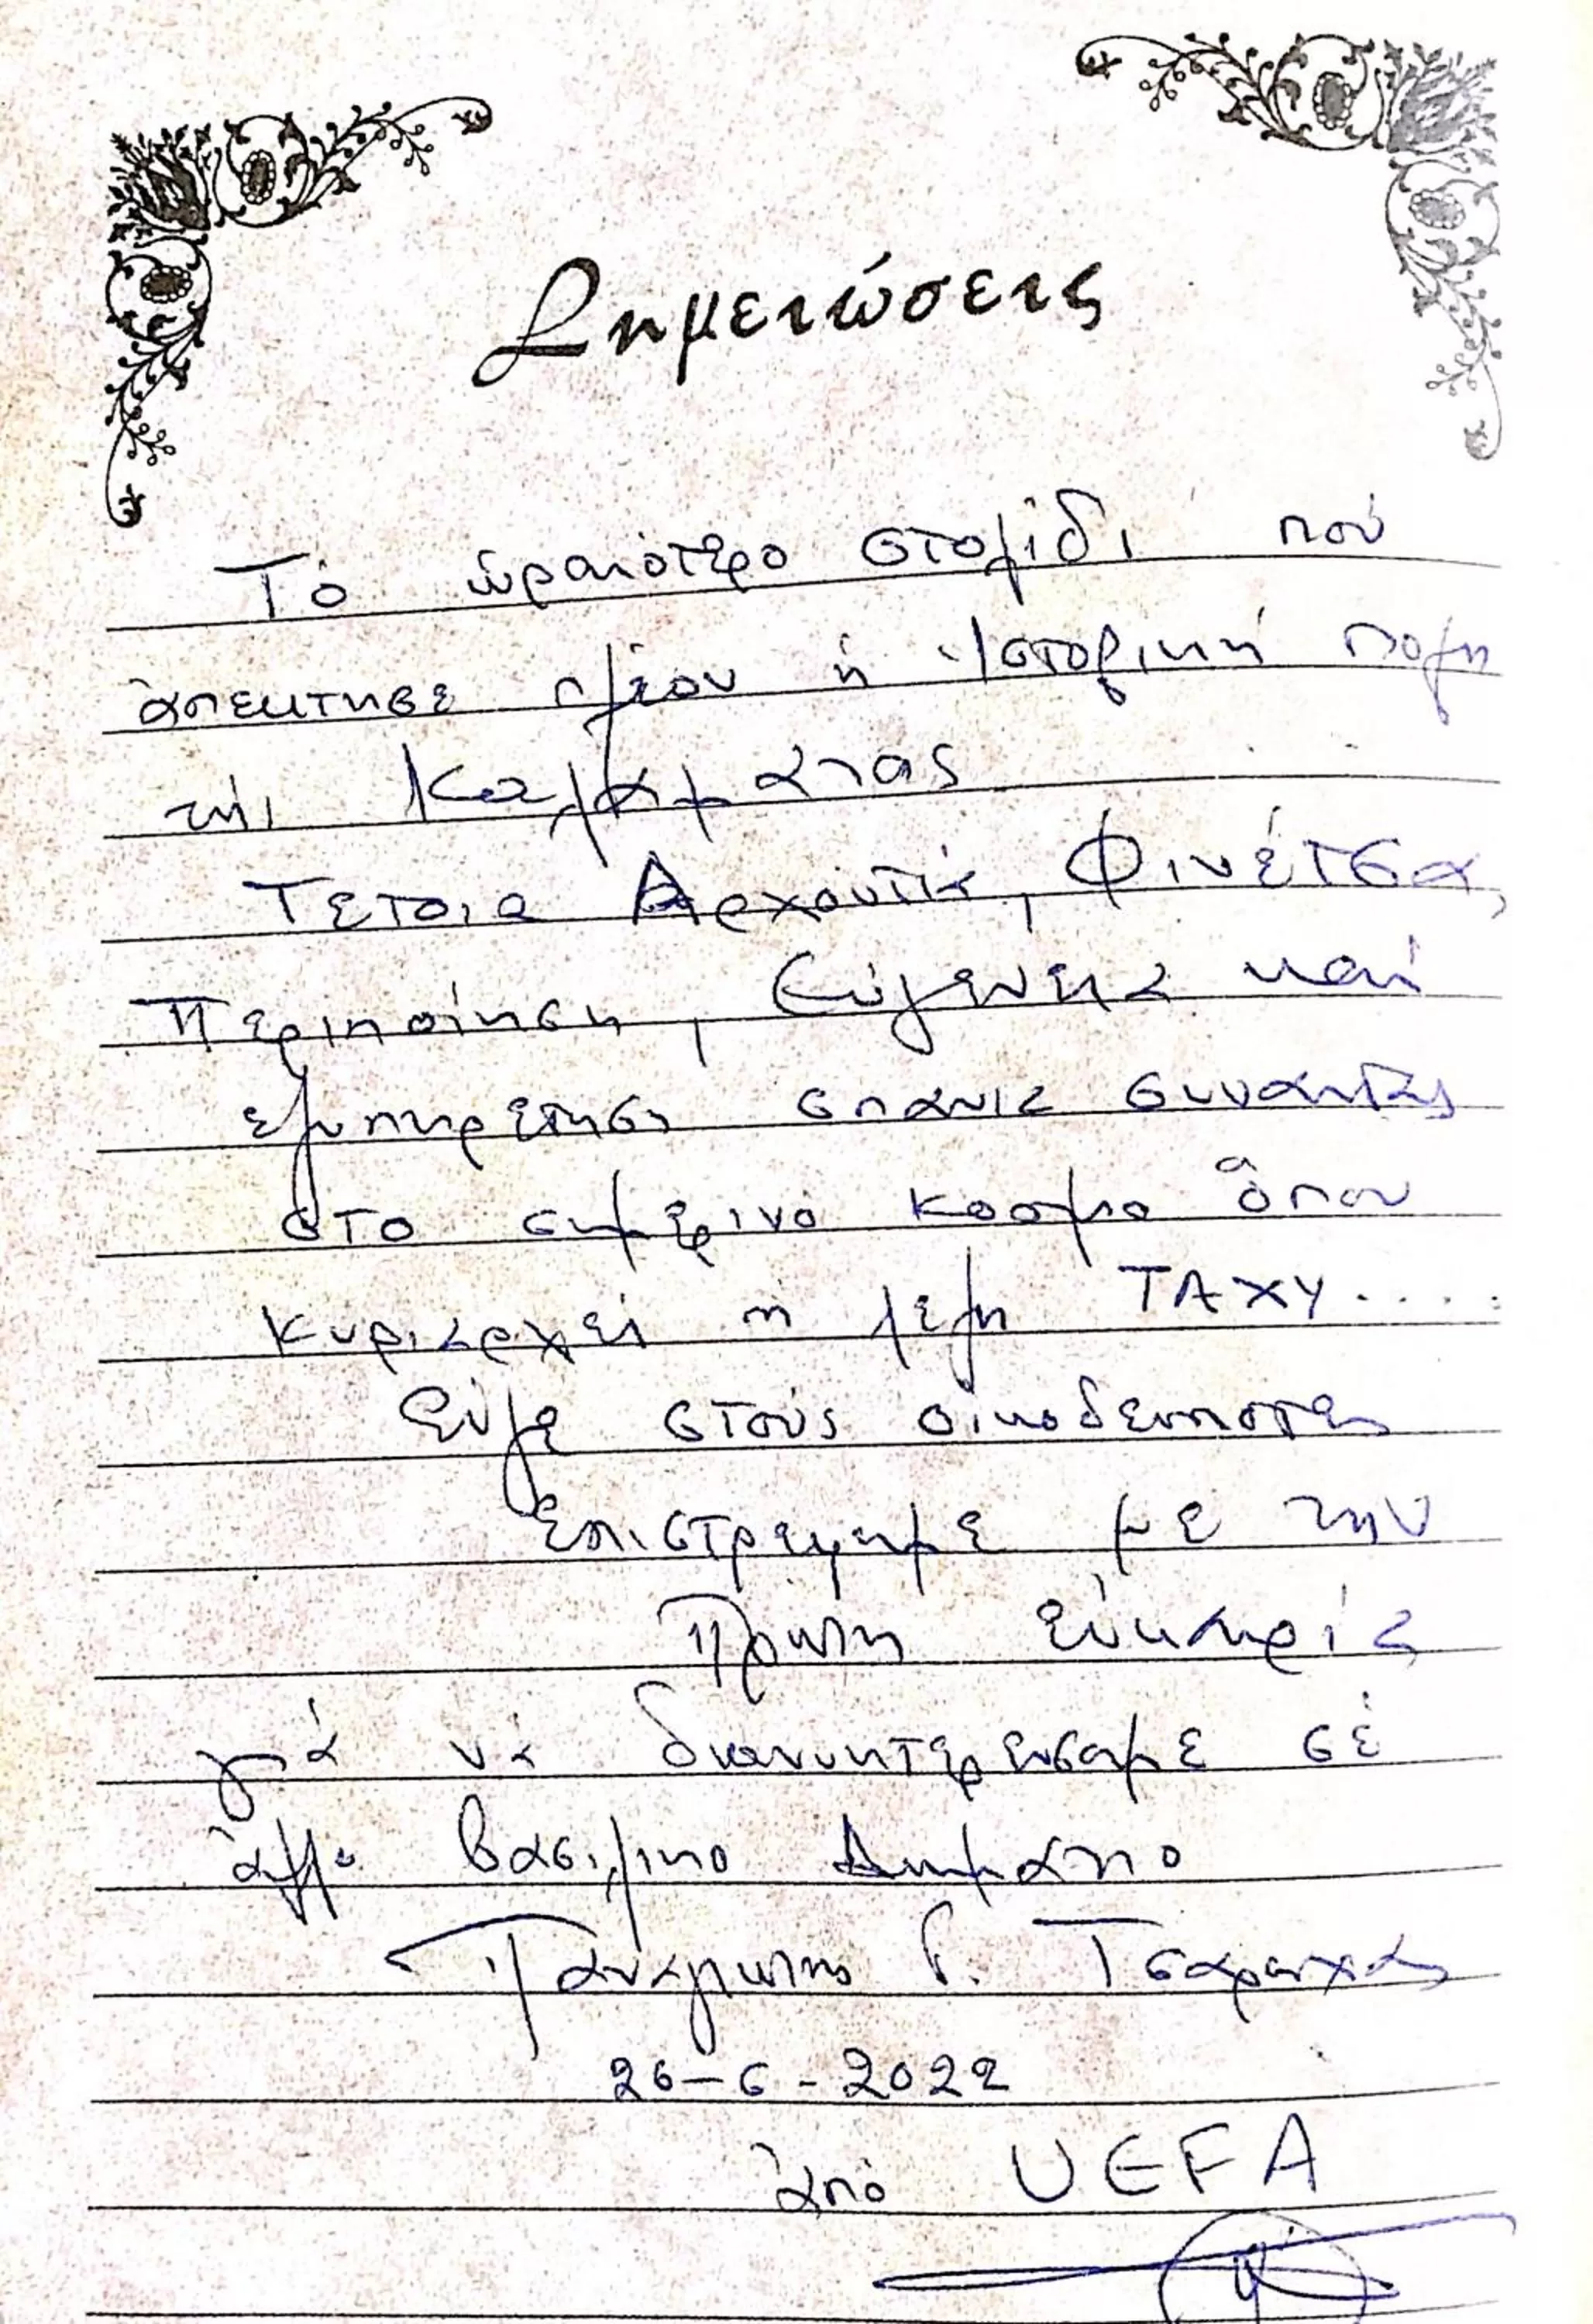 Σημειώσεις
Τό ὡραιότερο στολίδι πού
ἀπέκτησε πλέον ἡ Ἱστορική πόλη
τῆς Καλαμάτας
Τέτοια Αρχοντιά, Φινέτσα,
Περιποίηση, Εὐγένεια καί
εξυπηρέτηση σπάνια συναντάς
στο σημερινό κοσμο ὅπου
κυριαρχεί ἡ λεξη ΤΑΧΥ.....
Εὖγε στούς οικοδεσποτες
Ἐπιστρεψαμε με την
Πρωτη εὐκαιρία
γιά νά διανυκτερευσαμε σέ
ἀλλο βασιλικο Δωματιο
Παναγιωτης Γ. Τσαρουχας
26-6-2022
ἀπό UEFA